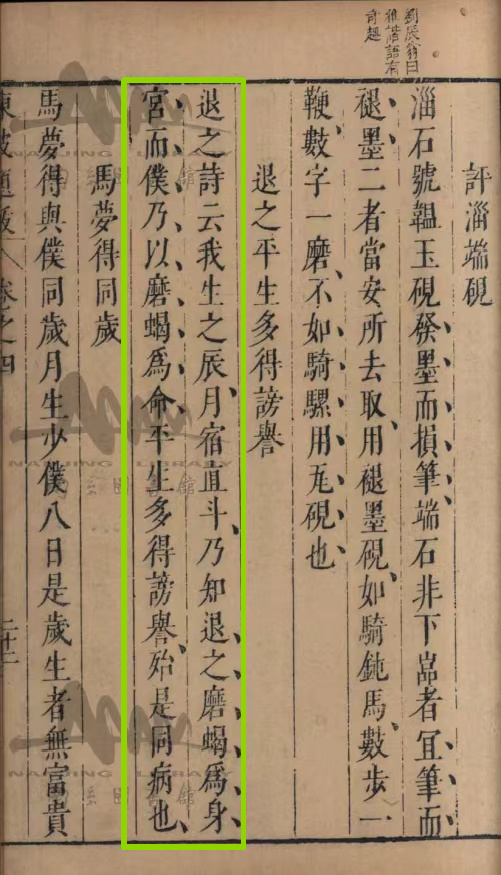 劉辰翁曰
雅謔語有
奇趣
評淄端硯
淄石號韞玉硯發墨而損筆端石非下嵓者宜筆而
褪墨二者當安所去取用褪墨硯如騎鈍馬數步一
鞭數字一磨不如騎騾用瓦硯也
退之平生多得謗譽
退之詩云我生之辰月宿直斗乃知退之磨蝎爲身
宮而僕乃以磨蝎爲命平生多得謗譽殆是同病也
馬夢得同歲
馬夢得與僕同歲月生少僕八日是歲生者無富貴
卷之四
二十二
NANJING LIBRARY